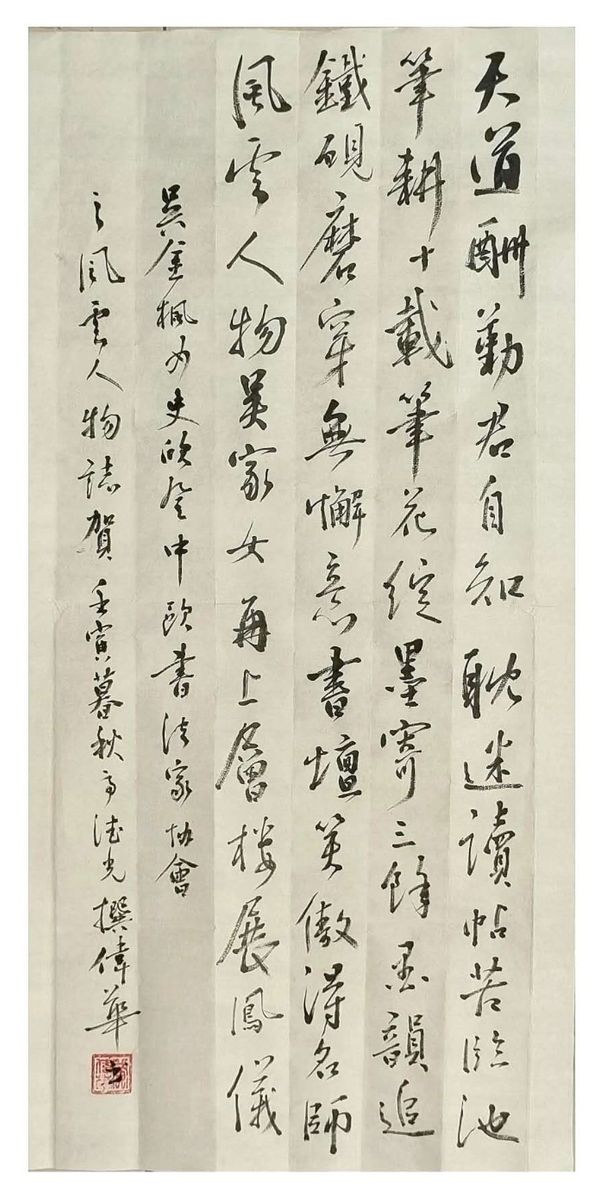 天道酬勤君自知耽迷讀帖苦临池
筆耕十載筆花綻墨寄三餘墨韻追
鐵硯磨穿無懈意書壇笑傲得名師
風雲人物吴家女再上層楼展鳳儀
吴金楓女史欣登中歐書法家協會
之風雲人物誌賀壬寅暮秋高德光撰偉華